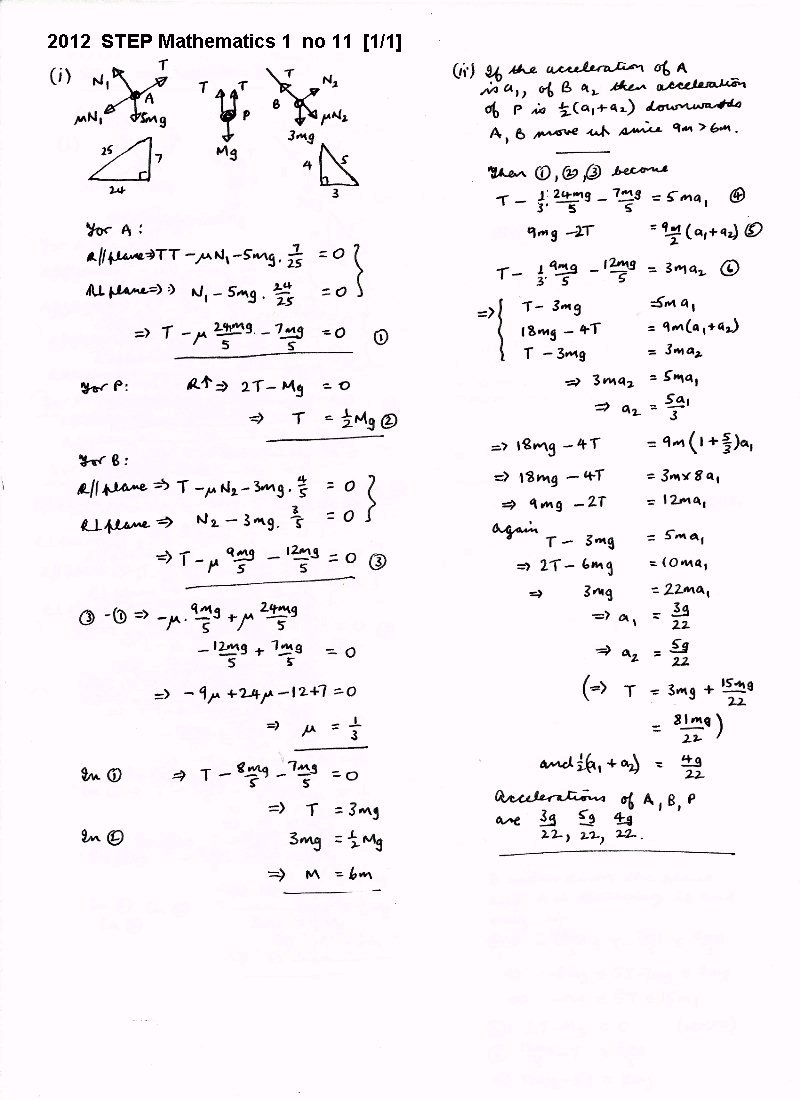 2012 STEP Mathematics 1 no 11 [1/1]
(i)
N₁ T
A
μN₁ 5mg
25 7
24
T T
P
Mg
T N₂
B
μN₂
3mg
4 5
3
For A:
R//plane ⇒ T - μN₁ - 5mg. 7/25 = 0
R⊥plane ⇒ N₁ - 5mg. 24/25 = 0
⇒ T - μ 24mg/5 - 7mg/5 = 0 ①
For P: R↑ ⇒ 2T - Mg = 0
⇒ T = ½Mg ②
For B:
R//plane ⇒ T - μN₂ - 3mg. 4/5 = 0
R⊥plane ⇒ N₂ - 3mg. 3/5 = 0
⇒ T - μ 9mg/5 - 12mg/5 = 0 ③
③ - ① ⇒ -μ. 9mg/5 + μ 24mg/5
- 12mg/5 + 7mg/5 = 0
⇒ -9μ + 24μ - 12 + 7 = 0
⇒ μ = 1/3
In ① ⇒ T - 8mg/5 - 7mg/5 = 0
⇒ T = 3mg
In ② 3mg = ½Mg
⇒ M = 6m
(ii) If the acceleration of A
is a₁, of B a₂ then acceleration
of P is ½(a₁+a₂) downwards
A, B move up since 9m > 6m.
Then ①, ②, ③ become
T - 1/3. 24mg/5 - 7mg/5 = 5ma₁ ④
9mg - 2T = 9m/2 (a₁+a₂) ⑤
T - 1/3. 9mg/5 - 12mg/5 = 3ma₂ ⑥
⇒ { T - 3mg = 5ma₁
18mg - 4T = 9m(a₁+a₂)
T - 3mg = 3ma₂
⇒ 3ma₂ = 5ma₁
⇒ a₂ = 5a₁/3
⇒ 18mg - 4T = 9m(1 + 5/3)a₁
⇒ 18mg - 4T = 3m×8a₁
⇒ 9mg - 2T = 12ma₁
again T - 3mg = 5ma₁
⇒ 2T - 6mg = 10ma₁
⇒ 3mg = 22ma₁
⇒ a₁ = 3g/22
⇒ a₂ = 5g/22
(⇒ T = 3mg + 15mg/22
= 81mg/22)
and ½(a₁+a₂) = 4g/22
Accelerations of A, B, P
are 3g/22, 5g/22, 4g/22.